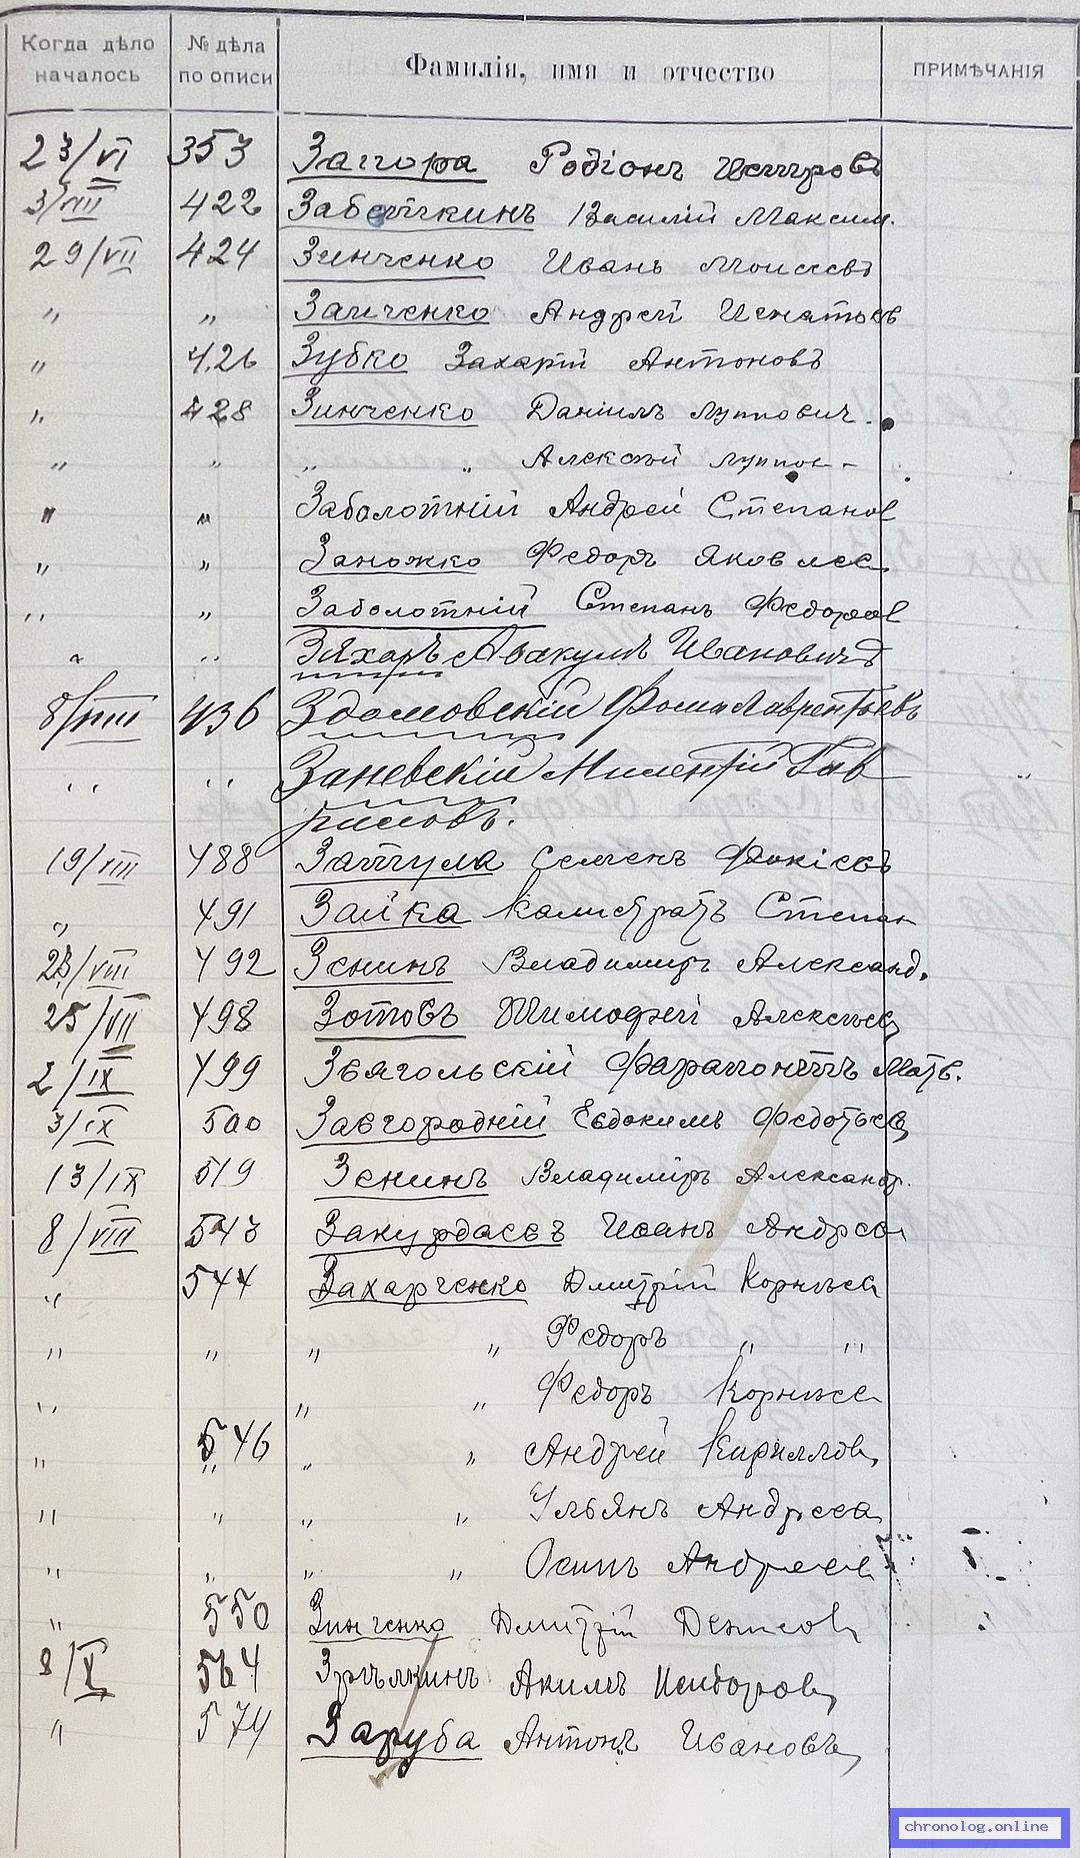 Когда дѣло началось № дѣла по описи Фамилія, имя и отчество ПРИМѢЧАНІЯ
23/VI 353 Родіонъ
3/VIII 422 Василій Максим.
29/VII 424 Зинченко Иванъ Моисеев
" " Заиченко Андрей Игнатьев
" 426 Зубко Захарій Антоновъ
" 428 Зинченко Даніилъ Луппович.
" " " " Алексѣй Луппов-
" " Заболотній Андрей Степанов
" " Заножко Федоръ Яковлев
" " Заболотній Степанъ Федоров
" " Авакумъ Ивановичъ
8/VIII 436 Здомовскій Фома Лаврентьевъ
" " Заневскій Милентій Гав
риловъ.
19/VIII 488 Затула Семенъ Фокіевъ
" 491 Зайка Калистратъ Степан
23/VIII 492 Зенинъ Владимиръ Александ.
25/VII 498 Зотовъ Тимофей Алексеев
2/IX 499 Звягольскій Матв.
3/IX 500 Завгородній Евдокимъ Федотьев
13/IX 519 Зенинъ Владимиръ Александр.
8/VIII 543 Закурдаевъ Иванъ Андреев
" 544 Захарченко Дмитрій Корнеев
" " " " Федоръ " "
" " " Федоръ Корнеев
" 546 " " Андрей Кириллов
" " " " Ульянъ Андреев
" " " " Осипъ Андреев
" 550 Зинченко Дмитрій Денисов
8/X 564 Акимъ Исидоров
" 574 Заруба Антонъ Ивановъ
chronolog.online